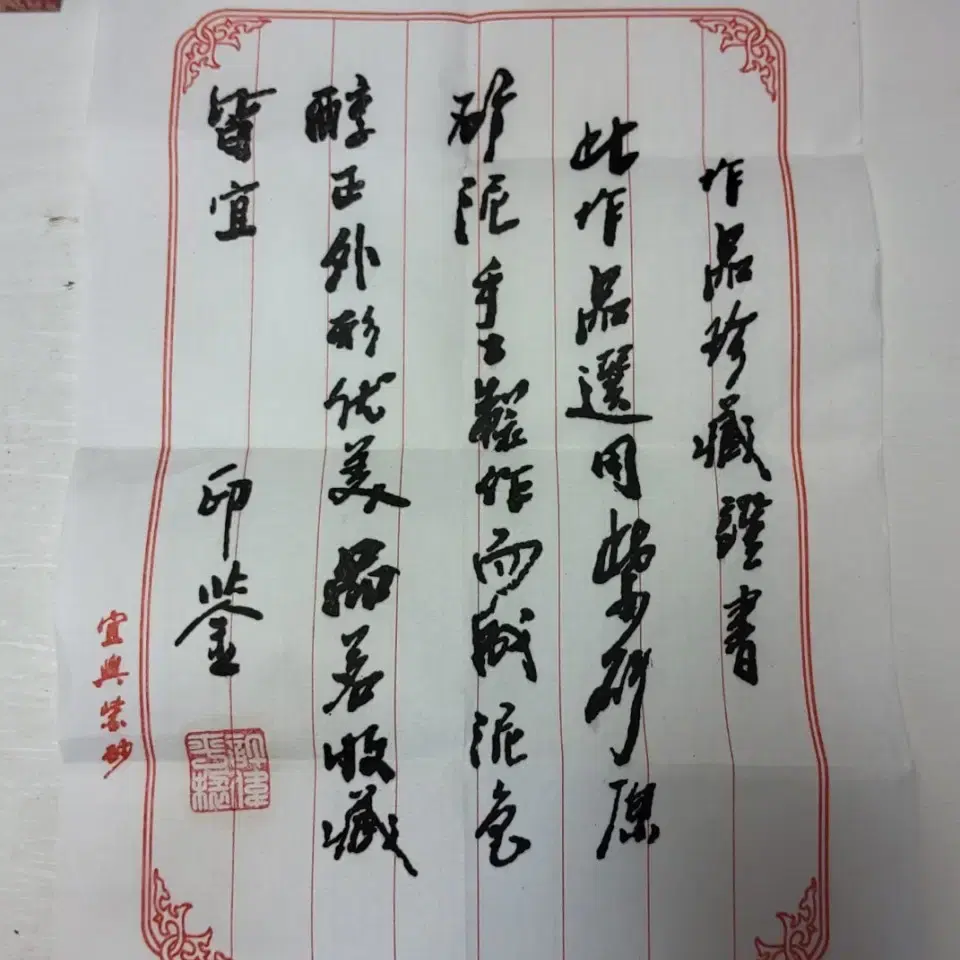 作品珍藏證書
此作品選用紫砂原
砂泥手工製作而成泥色
醇正外形优美品茗收藏
皆宜 印鉴
宜興紫砂